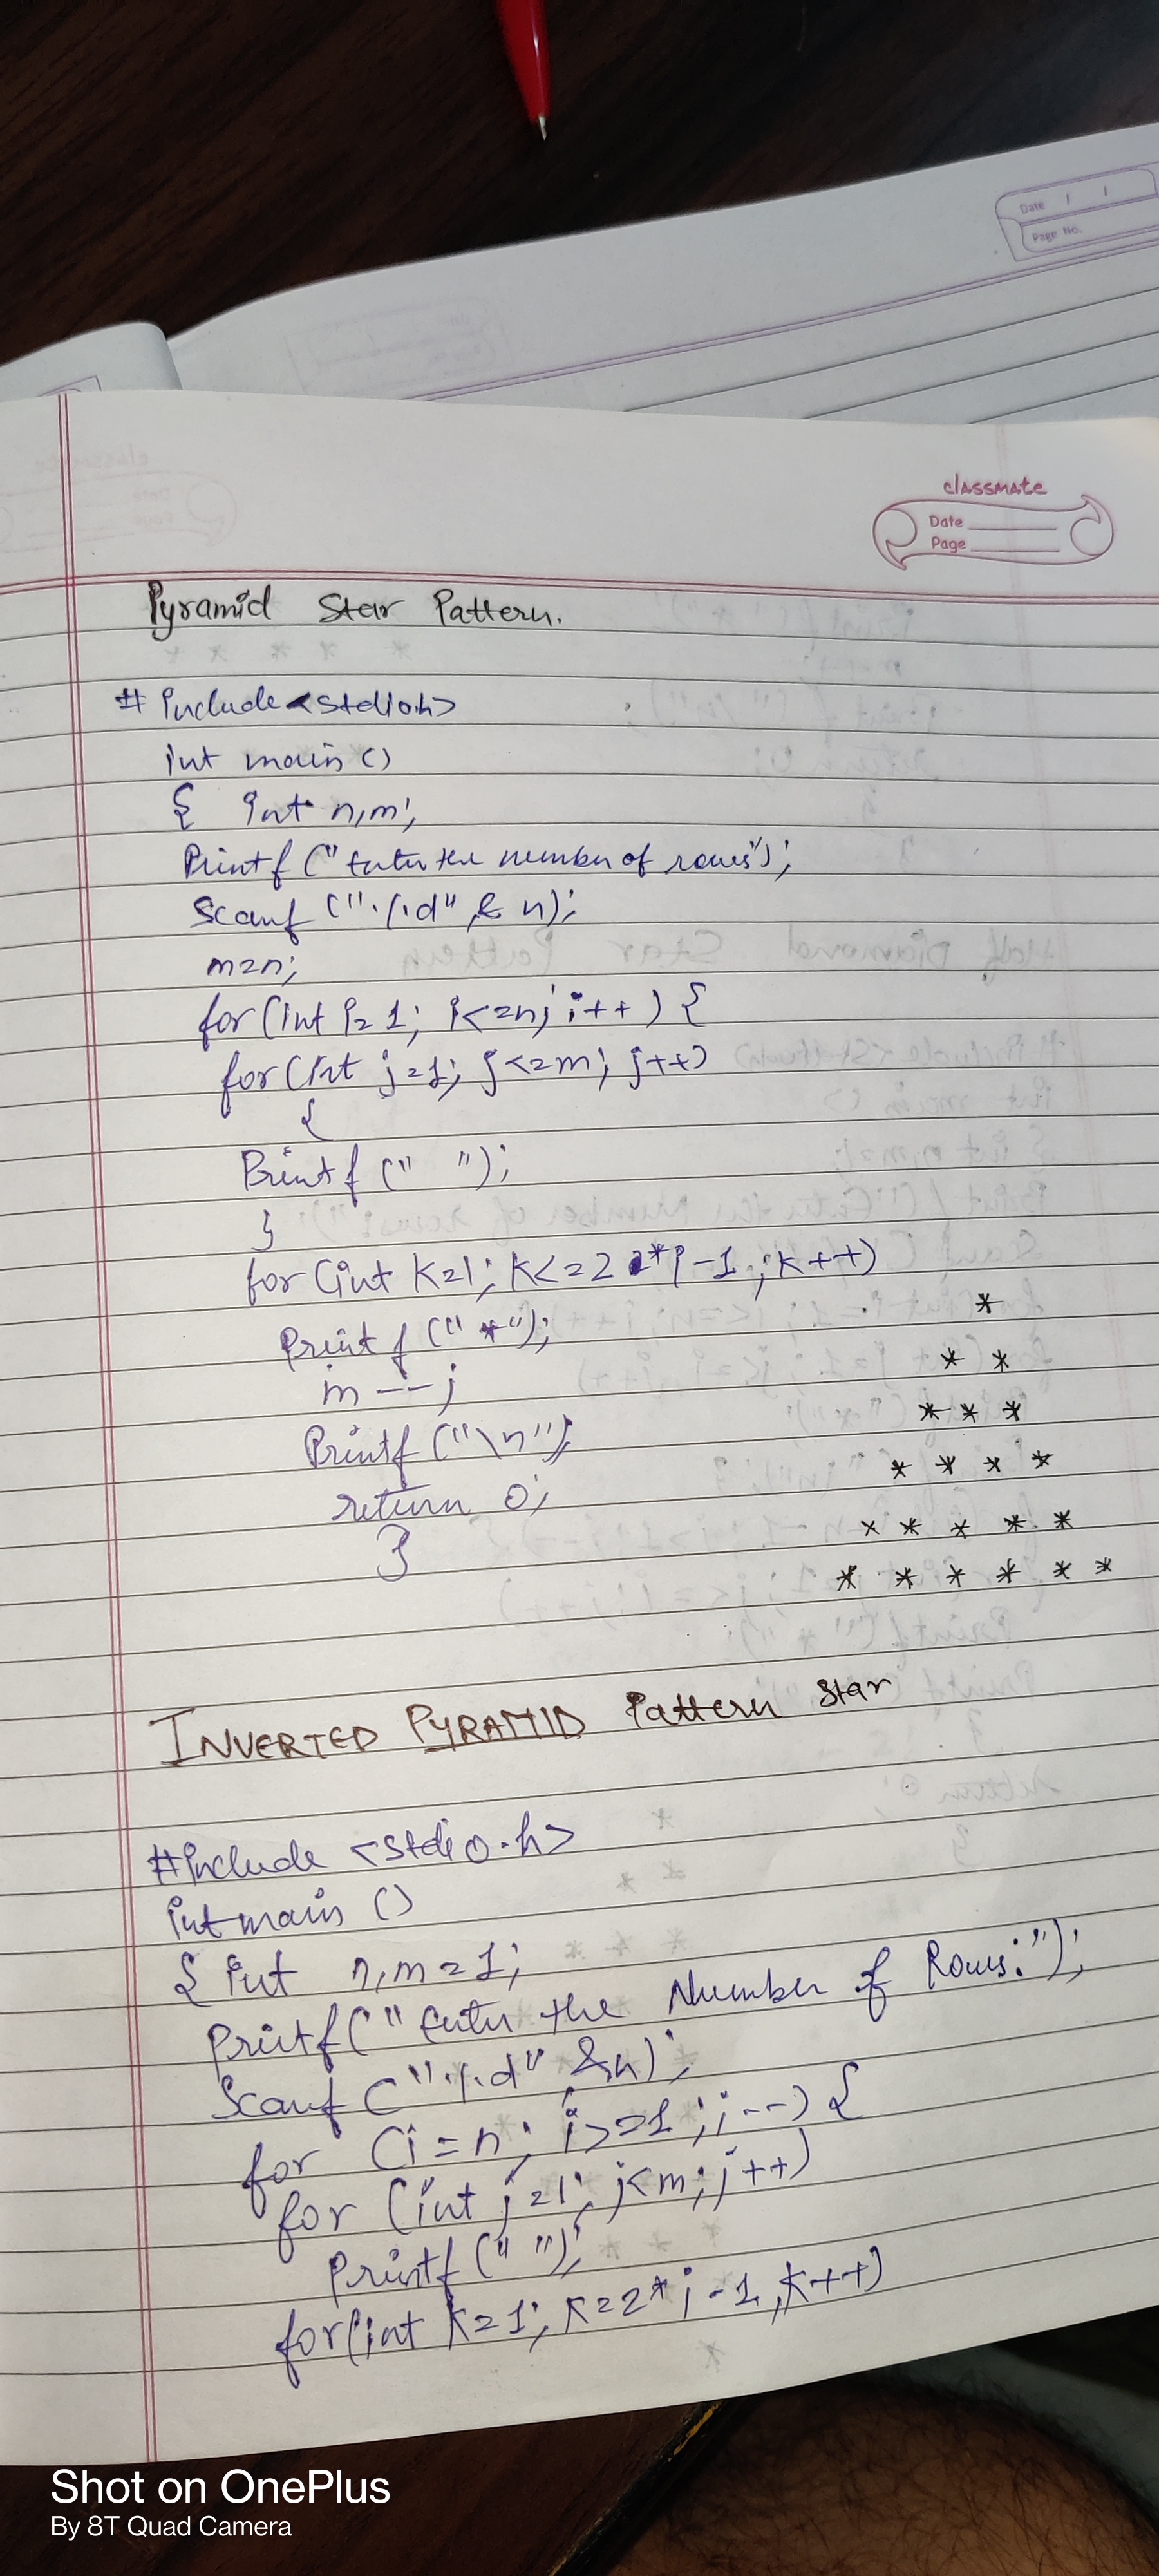 Date / /
Page No.
classmate
Date
Page
Pyramid Star Pattern.
# include <stdioh>
int main ()
{ int n,m;
Printf ("Enter the number of rows");
Scanf ("%d" & n);
m=n;
for (int i=1; i<=n; i++) {
for (int j=1; j<=m; j++)
{
Printf (" ");
}
for (int k=1; k<=2 *i-1 ; k++)
Printf ("*");
m--;
Printf ("\n");
return 0;
}
*
* *
* * *
* * * *
* * * * *
* * * * * *
INVERTED PYRAMID Pattern Star
#include <stdio.h>
int main ()
{ int n,m=1;
Printf ("Enter the Number of Rows:");
Scanf ("%d" &n);
for (i=n; i>=1; i--) {
for (int j=1; j<m; j++)
Printf (" ");
for (int k=1; k=2*i-1, k++)
Shot on OnePlus
By 8T Quad Camera